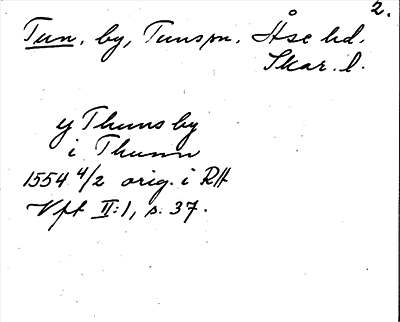 2.
Tun, by, Tunspn. Åse hd.
Skar. l.
y Thuns by
i Thunn
1554 4/2 orig. i RA
Vft II:1, s. 37.